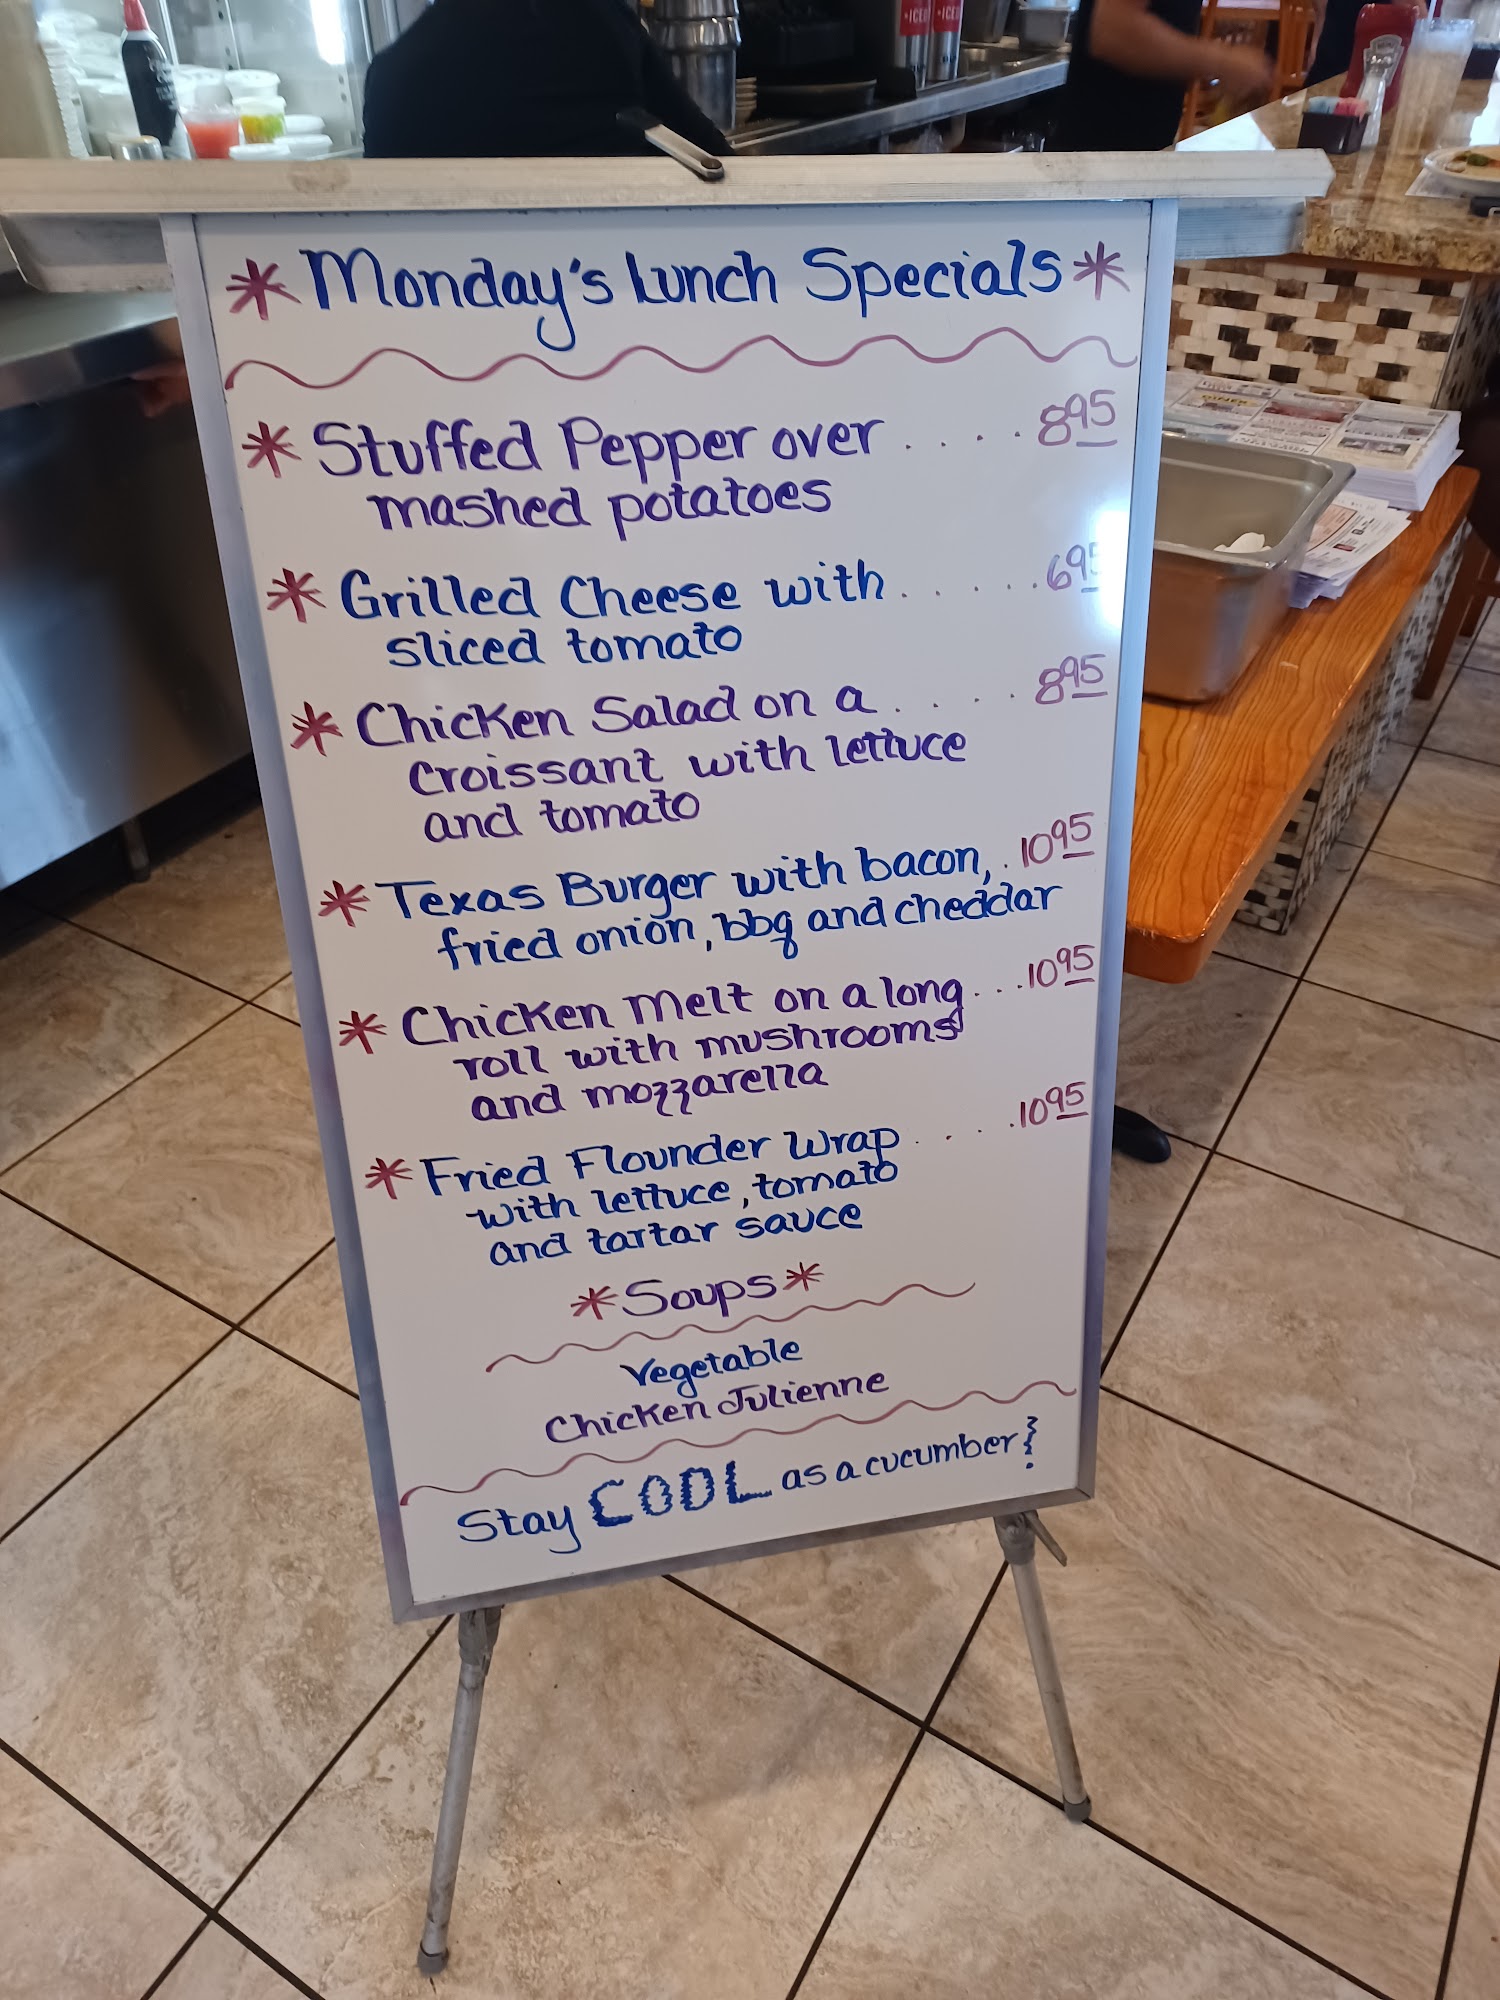 * Monday's Lunch Specials *
* Stuffed Pepper over . . . . 8 95
mashed potatoes
* Grilled Cheese with . . . . . . 6 95
sliced tomato
* Chicken Salad on a . . . . . 8 95
croissant with lettuce
and tomato
* Texas Burger with bacon, . 10 95
fried onion, bbq and cheddar
* Chicken Melt on a long . . . 10 95
roll with mushrooms
and mozzarella
* Fried Flounder Wrap . . . . . 10 95
with lettuce, tomato
and tartar sauce
*Soups*
Vegetable
Chicken Julienne
Stay COOL as a cucumber!
ICED
ICED